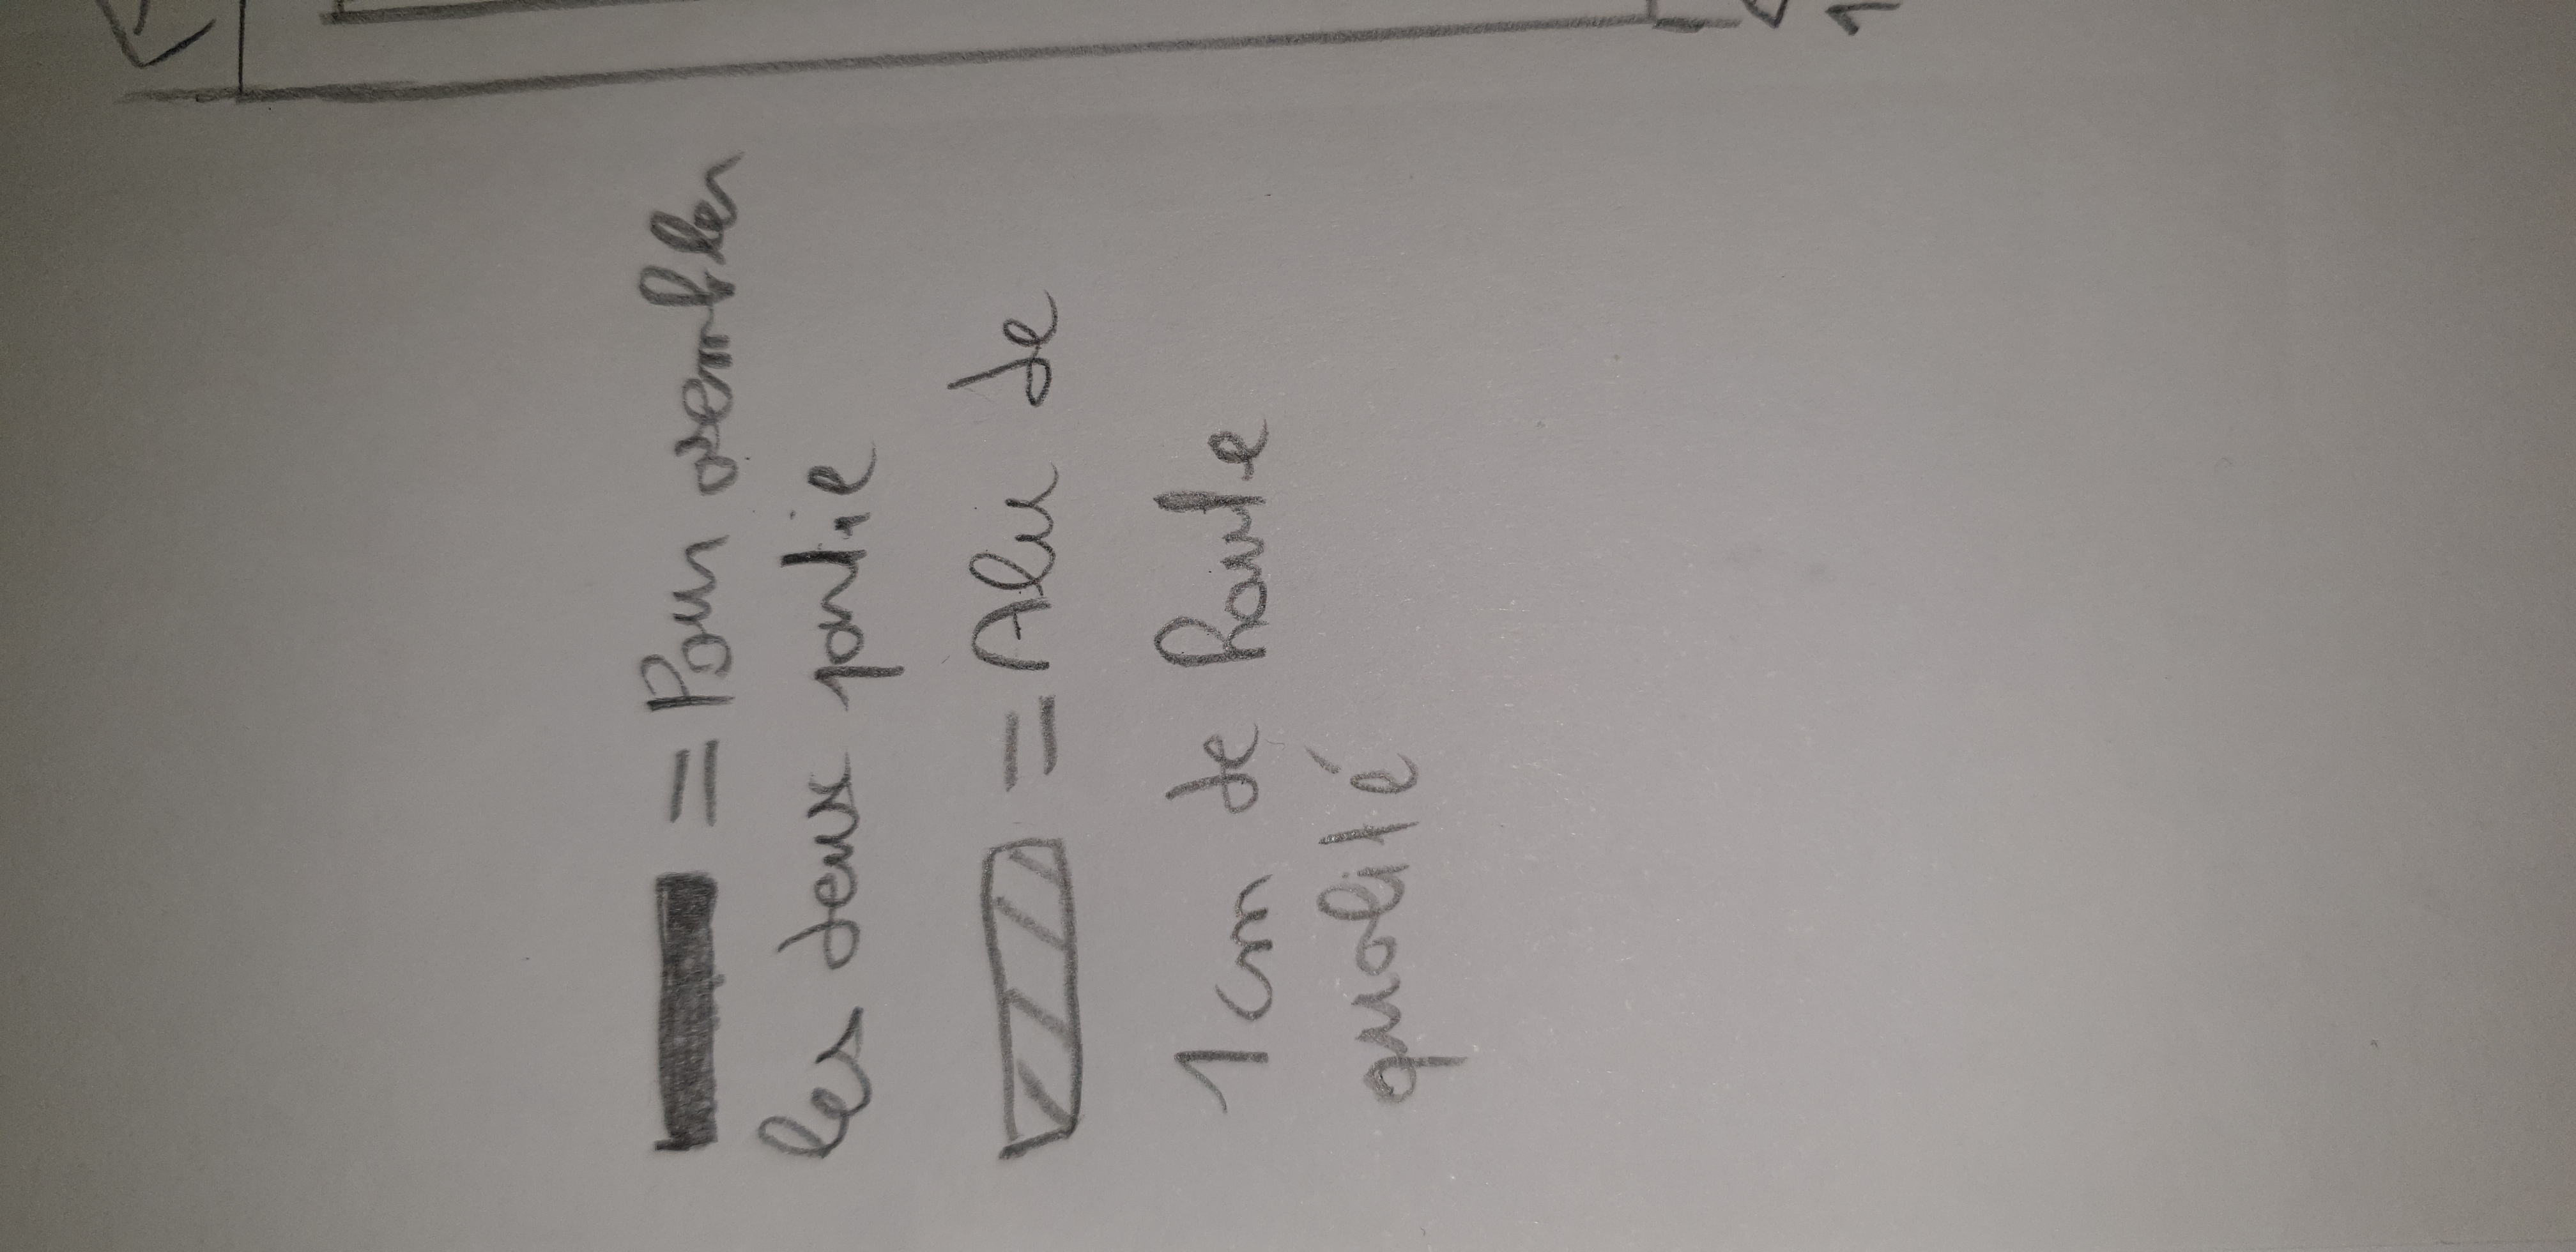 = Pour assembler
les deux partie
= Alu de
1 cm de haute
qualité